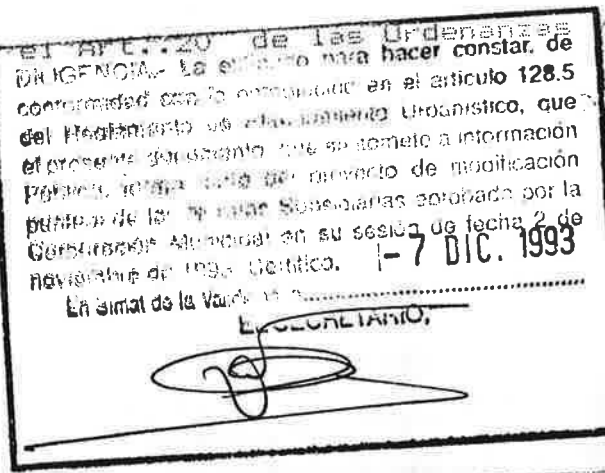 el Art..20 de las Ordenanzas
DILIGENCIA.- La para hacer constar, de
conformidad con lo en el artículo 128.5
del Reglamento de Urbanístico, que
el presente documento que se somete a información
Pública, forma parte del proyecto de modificación
puntual de las Normas Subsidiarias aprobada por la
Corporación Municipal en su sesión de fecha 2 de
noviembre de 1993. Certifico. - 7 DIC. 1993
En Simat de la
EL SECRETARIO,